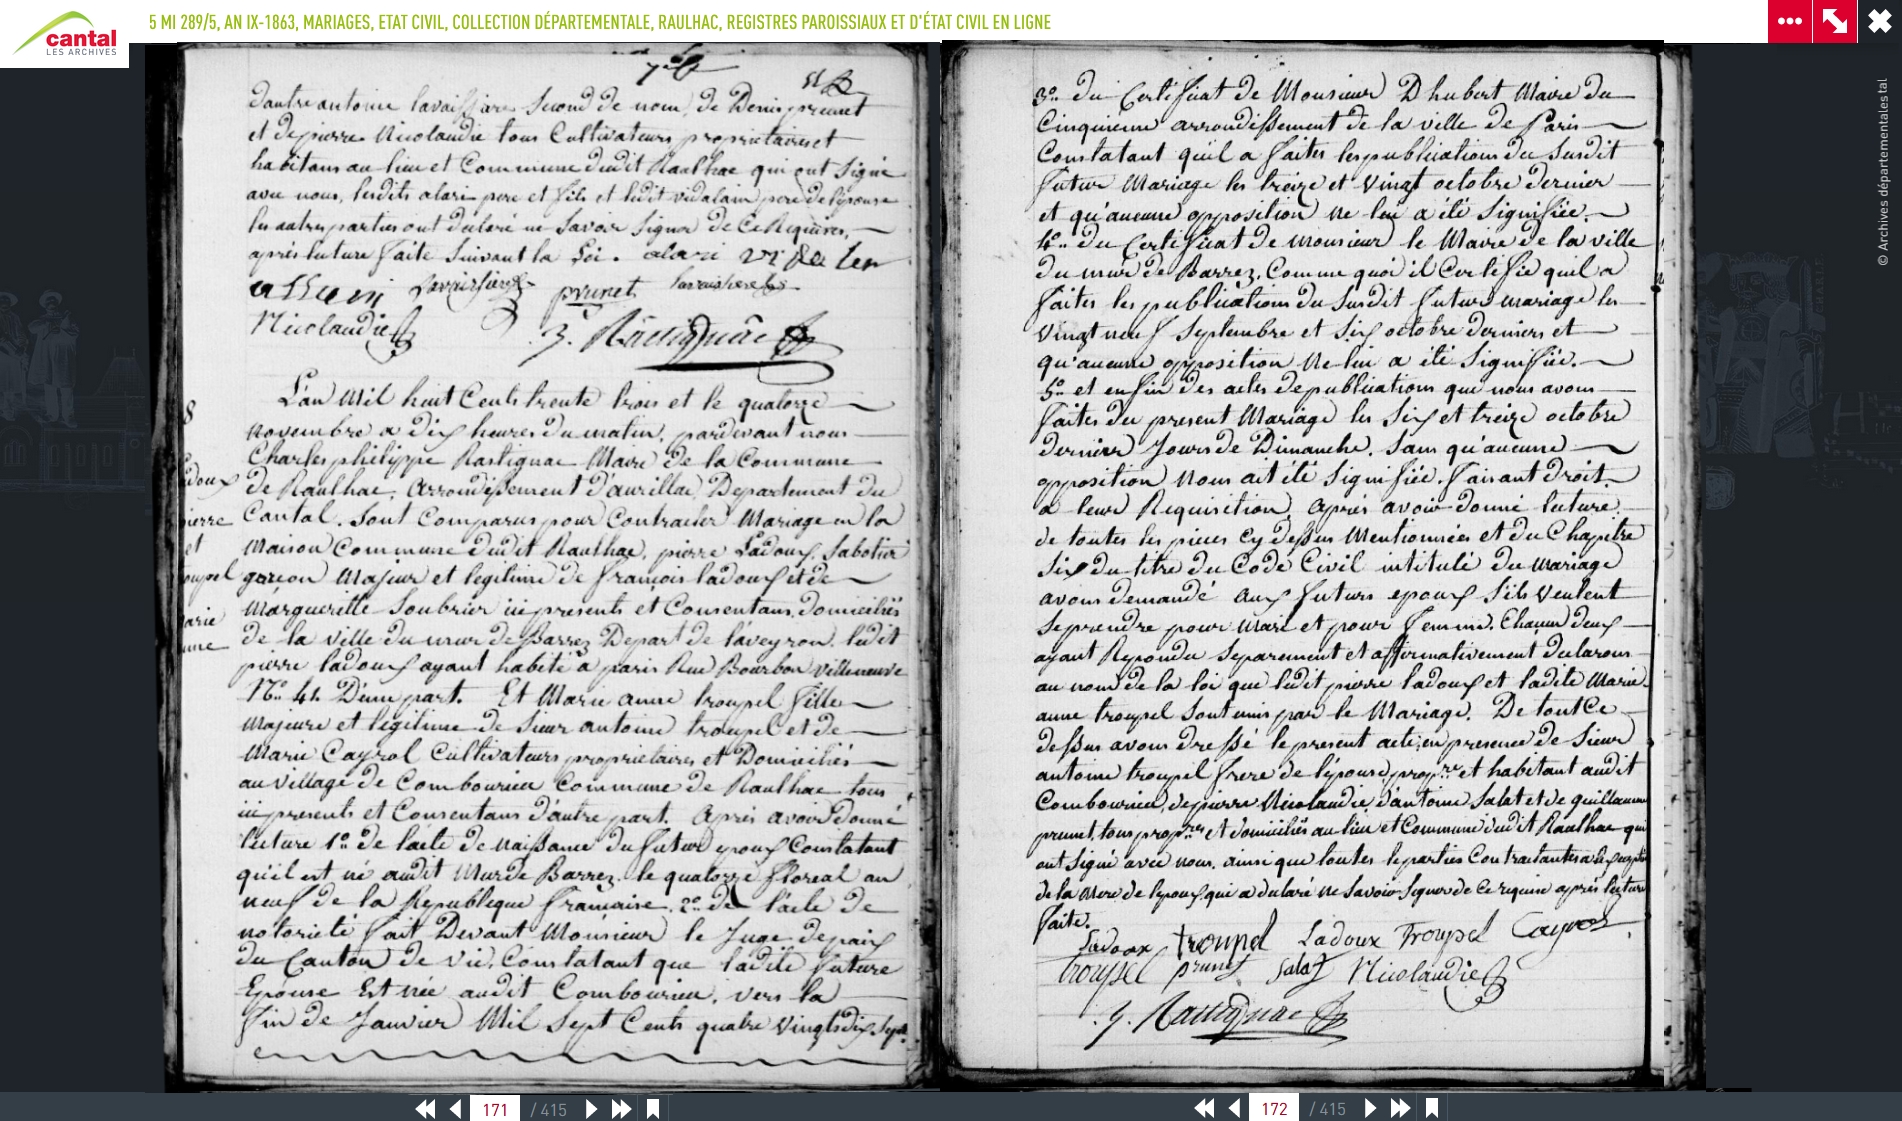 5 MI 289/5, AN IX-1863, MARIAGES, ETAT CIVIL, COLLECTION DÉPARTEMENTALE, RAULHAC, REGISTRES PAROISSIAUX ET D'ÉTAT CIVIL EN LIGNE
cantal
LES ARCHIVES
© Archives départementales tal
d'autre antoine lavaissiere second de nom, de Denis prunet
et de pierre Nicolaudie tous Cultivateurs propriétaires et
habitans au lieu et Commune dudit Raulhac qui ont Signé
avec nous, lesdits alari pere et fils et ledit vidalain pere de l'épouse
les autres parties ont déclaré ne Savoir Signer de Ce Requises,
après lecture faite Suivant la Loi. alari
Lavaissiere prunet lavaissiere
Nicolaudie J. Rastignac
L'an Mil huit Cents trente trois et le quatorze
novembre a dix heures du matin, pardevant nous
Charles philippe Rastignac Maire de la Commune
de Raulhac, arrondissement d'aurillac Departement du
Cantal. Sont Comparus pour Contracter Mariage en la
Maison Commune dudit Raulhac, pierre Ladoux, Sabotier
garcon Majeur et legitime de françois ladoux et de
Margueritte Soubrier ici presents et Consentans, domiciliés
de la ville du mur de Barrez Depart de l'aveyron. ledit
pierre ladoux ayant habité a paris Rue Bourbon villeneuve
N° 41. D'une part. Et Marie anne troupel fille
majeure et légitime de Sieur antoine troupel et de
Marie Cayrol Cultivateurs propriétaires et Domiciliés
au village de Combourieu Commune de Raulhac tous
ici presents et Consentans d'autre part. Après avoir Donné
lecture 1° de l'acte de naissance du futur epoux Constatant
qu'il est né audit Mur de Barrez. le quatorze floreal an
neuf de la Republique francaise. 2° de l'acte de
notorieté fait Devant Monsieur le Juge de paix
du Canton de vic, Constatant que ladite future
Epouse Est née audit Combourieu, vers la
fin de Janvier Mil Sept Cents quatre vingts dix Sept.
3° du Certificat de Monsieur Dhubert Maire du
Cinquieme arrondissement de la ville de Paris
Constatant qu'il a faites les publications du Susdit
futur Mariage les treize et vingt octobre dernier
et qu'aucune opposition ne lui a été Signifiée.
4° du Certificat de Monsieur le Maire de la ville
du mur de Barrez, Comme quoi il Certifie qu'il a
faites les publications du Susdit futur mariage les
vingt neuf Septembre et Six octobre derniers et
qu'aucune opposition Ne lui a été Signifiée.
5° et enfin des actes de publications que nous avons
faites du present Mariage les Six et treize octobre
dernier Jours de Dimanche. Sans qu'aucune
opposition nous ait été Signifiée. faisant droit
a leur Requisition, après avoir donné lecture
de toutes les pieces Cy dessus Mentionnées et du Chapitre
Six du titre du Code Civil intitulé du Mariage
avons demandé aux futurs epoux S'ils veulent
Se prendre pour Mari et pour femme. Chacun deux
ayant Repondu Separement et affirmativement déclarons
au nom de la loi que ledit pierre ladoux et ladite Marie
anne troupel Sont unis par le Mariage. De tout Ce
dessus avons dressé le present acte, en presence de Sieur
antoine troupel frere de l'épouse, propre et habitant audit
Combourieu, de pierre Nicolaudie, d'antoine Salat et de guillaume
prunet, tous propres et domiciliés au lieu et Commune dudit Raulhac qui
ont Signé avec nous, ainsi que toutes les parties Contractantes
de la mere de l'epoux qui a declaré ne Savoir Signer de Ce requise après lecture
faite.
Ladoux troupel Ladoux Troupel Cayrol
troupel prunet Salat Nicolaudie
J. Rastignac
171 / 415
172 / 415